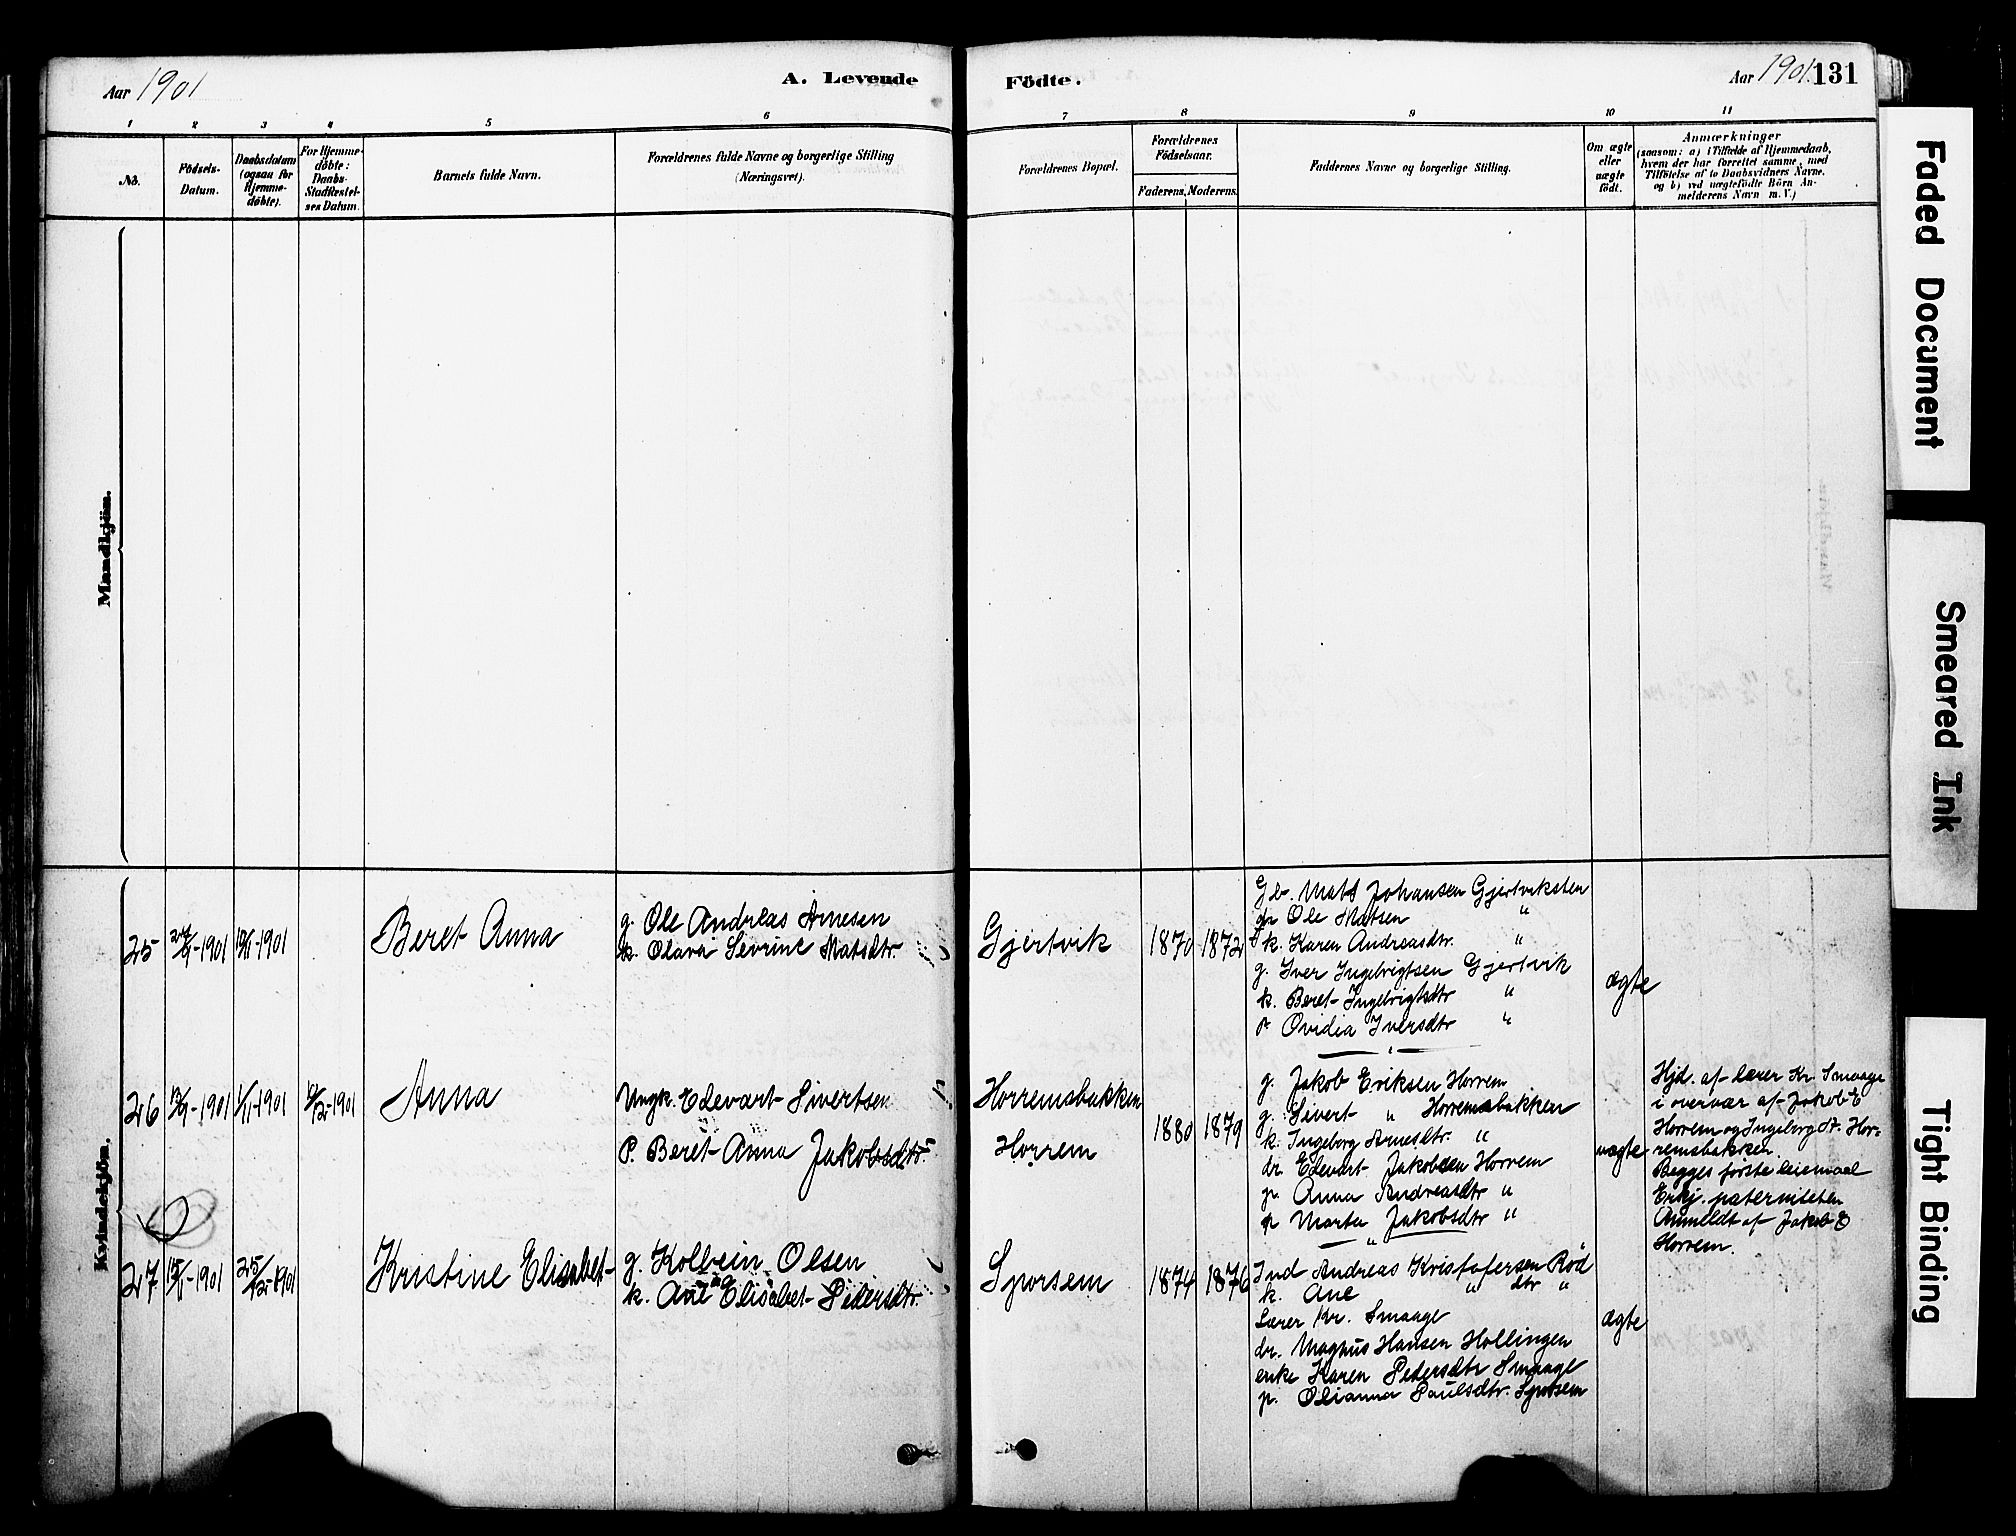 Aar 1901
A. Levende
Födte.
Aar 1901. 131
1 2 3 4 5 6 7 8 9 10 11
No.
Födsels-
Datum.
Daabsdatum
(ogsaa for
Hjemme-
döbte).
For Hjemme-
döbte:
Daabs-
Stadfæstel-
ses Datum.
Barnets fulde Navn.
Forældrenes fulde Navne og borgerlige Stilling
(Næringsvei).
Forældrenes Bopæl.
Forældrenes
Födselsaar.
Faderens. Moderens.
Faddernes Navne og borgerlige Stilling.
Om ægte
eller
uægte
født.
Anmærkninger
(saasom: a) i Tilfælde af Hjemmedaab,
hvem der har forrettet samme, med
Tilföielse af to Daabsvidners Navne.
og b) ved uægtefödte Börn An-
melderens Navn m. V.)
Mandkjön.
Kvindekjön.
25
Beret Anna
g. Ole Andreas Arnesen
k. Olava Sevrine Matsdtr.
Gjertvik
1870 1872
Gb. Mats Johansen Gjertviksten
Ole Matsen "
k. Karen Andreasdtr. "
g. Iver Ingebrigtsen Gjertvik
k. Beret Ingebrigtsdtr "
p. Ovidia Iversdtr "
ægte
26
Anna
Ungk. Edevart Sivertsen
P. Beret Anna Jakobsdtr
Horremsbakken
Horrem
1880 1879
g. Jakob Eriksen Horrem
g. Sivert " Horremsbakken
k. Ingeborg Arnesdtr. "
dr. Edevart Jakobsen Horrem
p. Anna Andreasdtr "
p. Marta Jakobsdtr "
uægte
Hjd. af lærer Kr. Smaage
i overvær af Jakob E
Horrem og Ingeborg A. Hor-
remsbakken.
Begges første leiemaal
Erkj. paterniteten
Anmeldt af Jakob E
Horrem.
27
Kristine Elisabet
g. Kolbein Olsen
k. Ane Elisabet Pedersdtr.
Sporsem
1874 1876
Ind Andreas Kristofersen Röd
k. Ane " dtr "
Lærer Kr. Smaage
dr. Magnus Hansen Hollingen
enke Karen Pedersdtr Smaage
p. Olianna Paulsdtr. Sporsem
ægte
Faded Document
Smeared Ink
Tight Binding